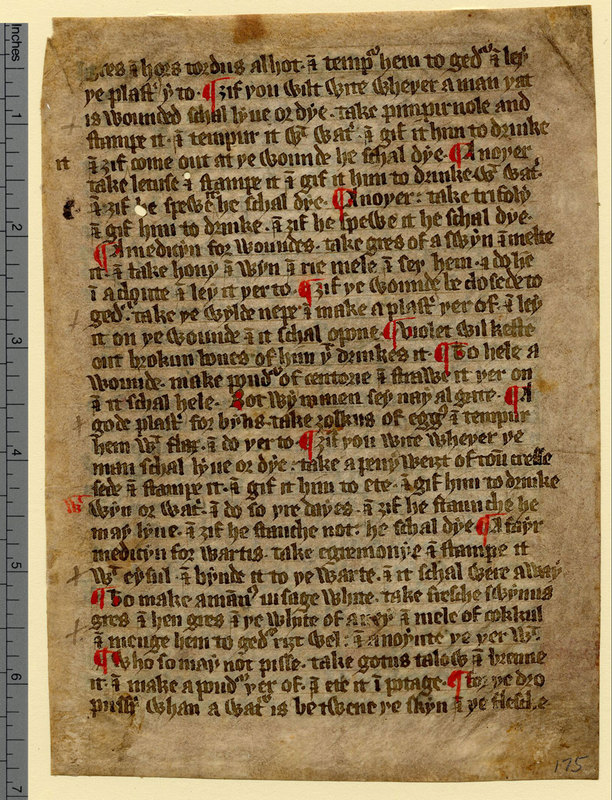 gres ⁊ hors tordus al hot · ⁊ tempʳ hem to gedʳ ⁊ ley
ye plastʳ yʳ to · ¶ ȝif you wilt wite wheyer a man yat
is wounded schal lyue or dye · take pimpirnole and
stampe it · ⁊ tempur it wᵗ watʳ · ⁊ gif it him to drinke
it ⁊ ȝif come out at ye wounde he schal dye · ¶ Anoyer
take letuse ⁊ stampe it ⁊ gif it him to drinke wᵗ watʳ ·
⁊ ȝif he spewe he schal dye · ¶ Anoyer : take trifoly
⁊ gif him to drinke · ⁊ ȝif he spewe it he schal dye ·
¶ A medicyn for woundes · take gres of a swyn ⁊ melte
it · ⁊ take hony ⁊ wyn ⁊ rie mele ⁊ sey hem · ⁊ do he
ī a cloute ⁊ ley it yer to · ¶ ȝif ye wounde be closede to
gedʳ · take ye wylde nepe ⁊ make a plastʳ yer of · ⁊ ley
it on ye wounde ⁊ it schal opone · ¶ Violet wil keste
out brokun bones of him yᵗ drinkes it · ¶ To hele a
wounde · make poudʳ of centorie ⁊ strawe it yer on
⁊ it schal hele · Bot wymmen sey nay al grite · ¶ A
gode plastʳ for byns · take ȝolkus of eggʳ ⁊ tempur
hem wᵗ flax · ⁊ do yer to · ¶ ȝif you wite wheyer ye
man schal lyue or dye : take a peny weiȝt of tou cresse
sede ⁊ stampe it · ⁊ gif it him to ete · ⁊ gif him to drinke
wyn or watʳ · ⁊ do so yre dayes · ⁊ ȝif he staunche he
may lyue · ⁊ ȝif he stanche not : he schal dye ¶ A fayr
medicyn for wartis · take egremonye ⁊ stampe it
wᵗ eysul · ⁊ bynde it to ye warte · ⁊ it schal were away
¶ To make a manʳ uisage white · take fresche swynus
gres ⁊ hen gres ⁊ ye white of a ey · ⁊ mele of cokkul
⁊ menge hem to gedʳ riȝt wel : ⁊ anoynte ye yer wᵗ ·
¶ Who so may not pisse · take gotus talow ⁊ brenne
it · ⁊ make a poudʳ yer of · ⁊ ete it ī potage · ¶ for ye dro
whan a watʳ is betwene ye skyn ⁊ ye flesche
175
Inches
1
2
3
4
5
6
7